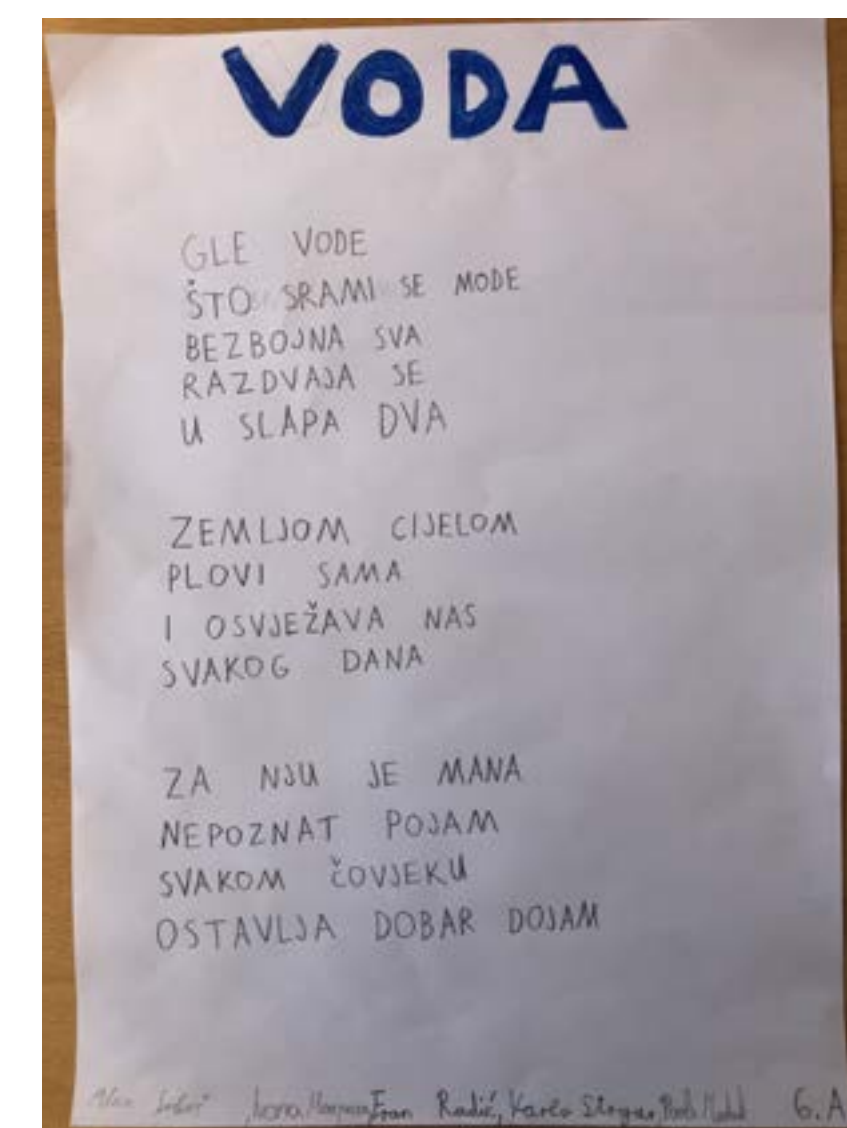 VODA
GLE VODE
ŠTO SRAMI SE MODE
BEZBOJNA SVA
RAZDVAJA SE
U SLAPA DVA
ZEMLJOM CIJELOM
PLOVI SAMA
I OSVJEŽAVA NAS
SVAKOG DANA
ZA NJU JE MANA
NEPOZNAT POJAM
SVAKOM ČOVJEKU
OSTAVLJA DOBAR DOJAM
Fran Radić, Karlo 6.A